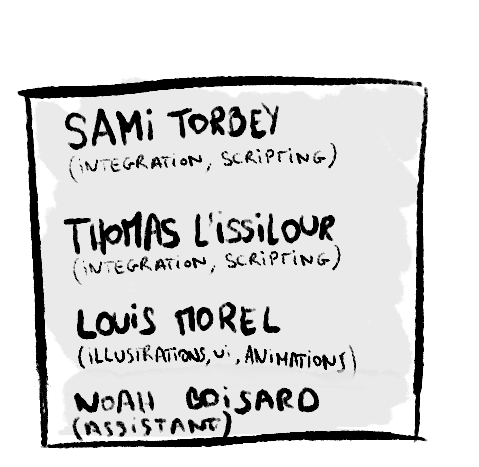 SAMi TORBEY
(iNTEGRATiON, SCRiPTiNG)
THOMAS L'iSSiLOUR
(iNTEGRATiON, SCRiPTiNG)
LOUiS MOREL
(iLLUSTRATiONS, Ui, ANiMATiONS)
NOAH BOiSARD
(ASSiSTANT)